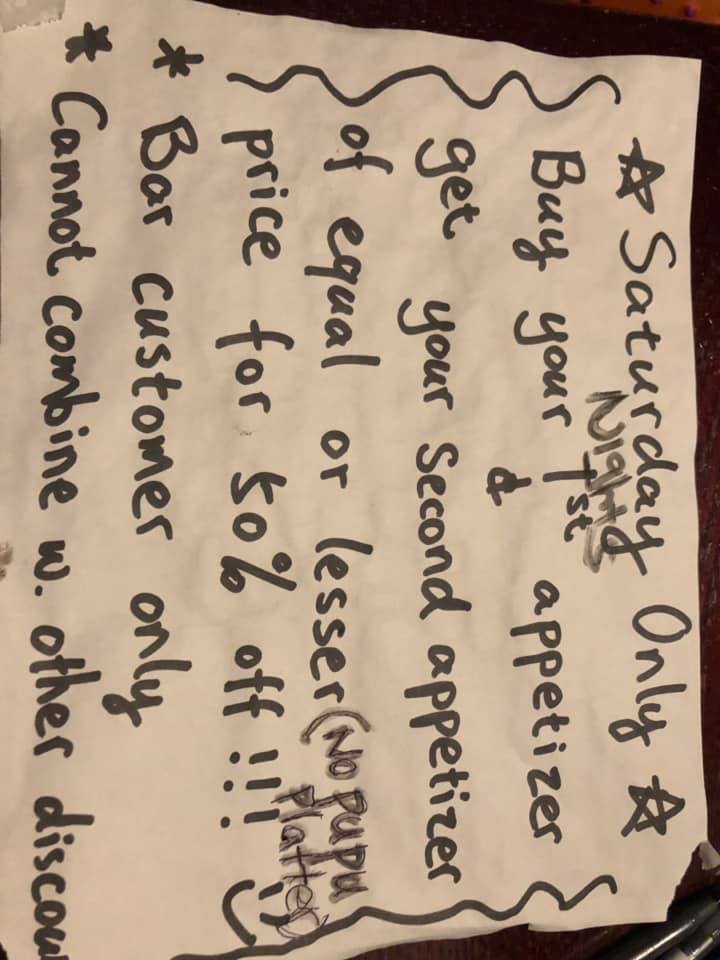 ☆ Saturday Only ☆
Nights
Buy your 1st appetizer
&
get your second appetizer
of equal or lesser (No pupu
platter)
price for 50% off !!! :)
* Bar customer only
* Cannot combine w. other discou